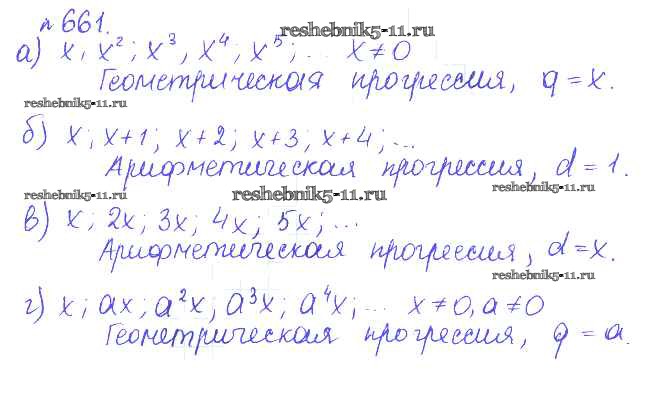 № 661.
reshebnik5-11.ru
а) x, x²; x³, x⁴; x⁵; ... x ≠ 0
Геометрическая прогрессия, q = x.
reshebnik5-11.ru
б) x; x+1; x+2; x+3; x+4; ...
Арифметическая прогрессия, d = 1.
reshebnik5-11.ru
reshebnik5-11.ru
reshebnik5-11.ru
в) x; 2x; 3x; 4x; 5x; ...
Арифметическая прогрессия, d = x.
reshebnik5-11.ru
г) x; ax; a²x; a³x; a⁴x; ... x ≠ 0, a ≠ 0
Геометрическая прогрессия, q = a.